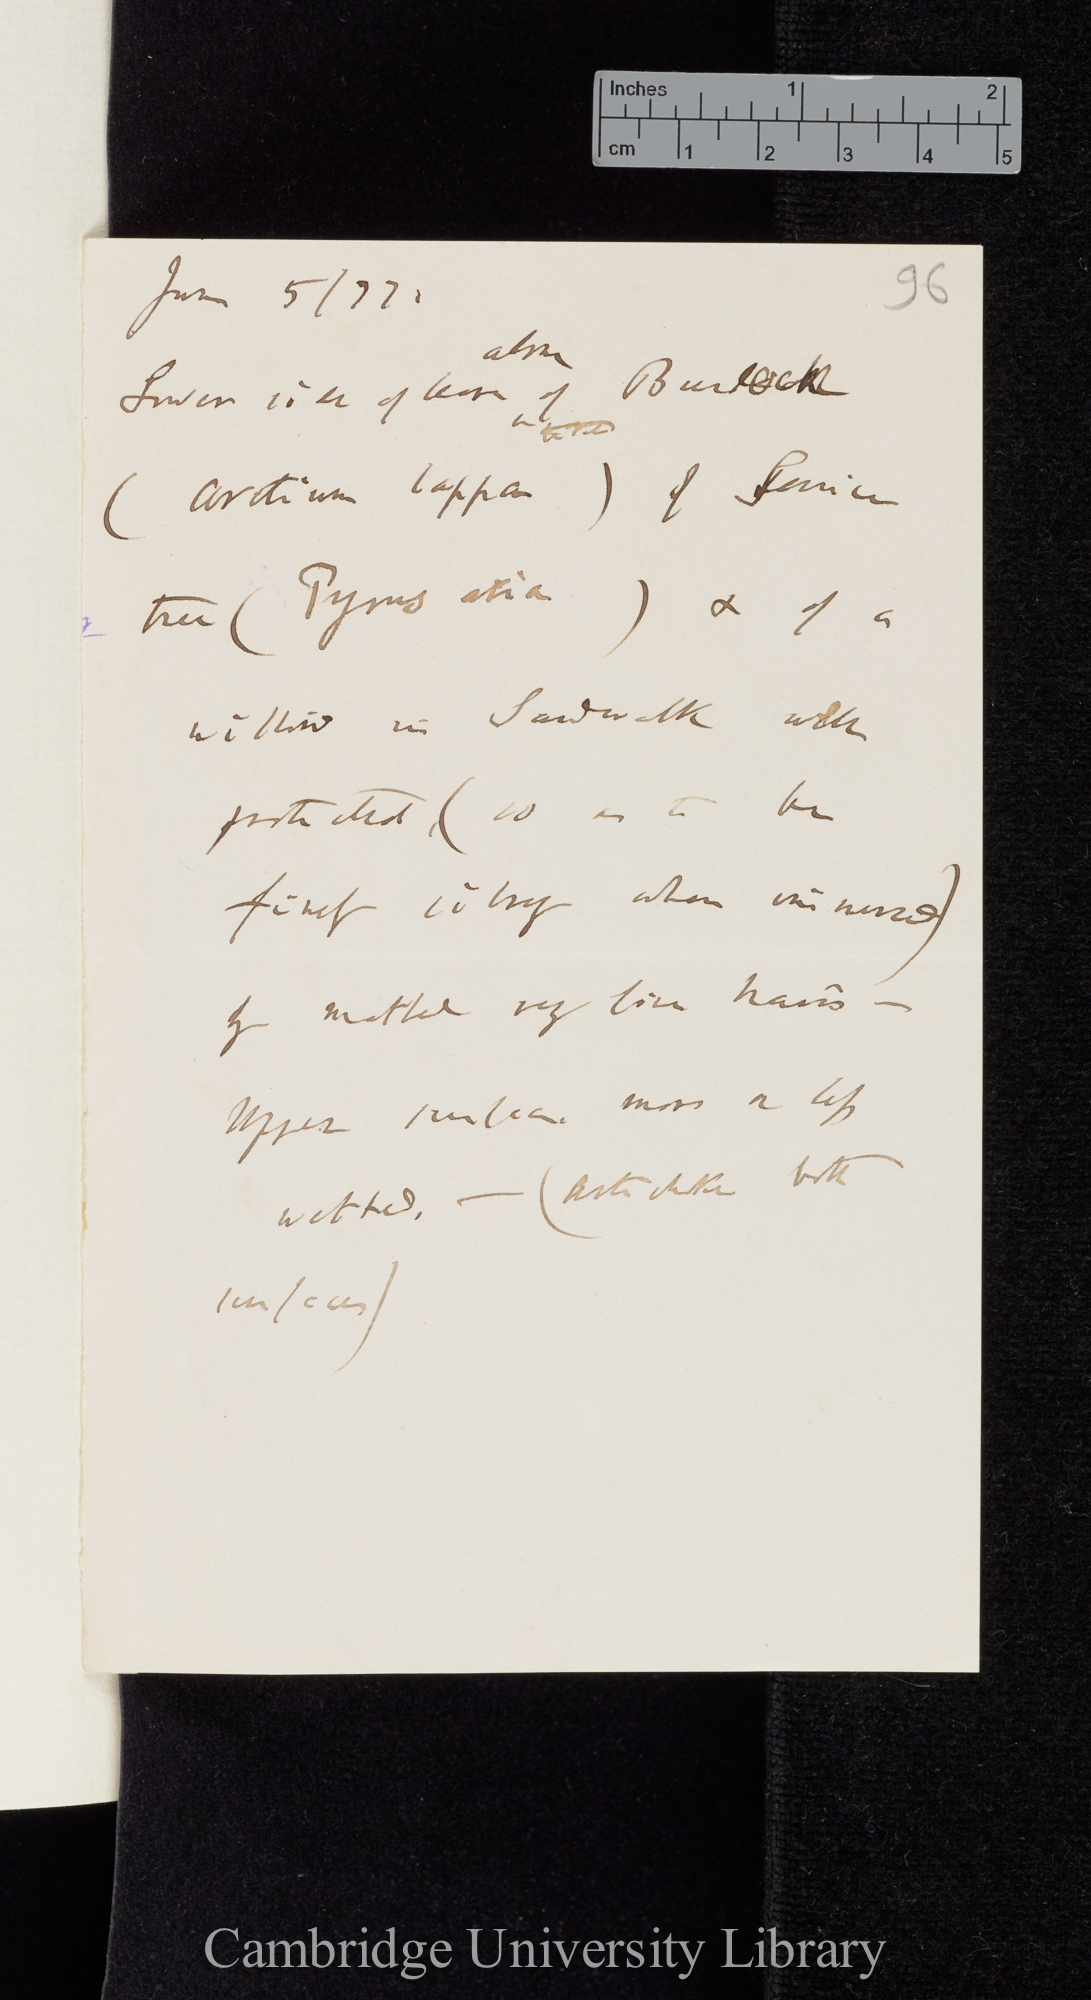 Inches 1 2
cm 1 2 3 4 5
96
June 5/77.
alone
Lower side of leaves of Burdock
(Arctium lappa) of Service
tree (Pyrus aria) & of a
willow in Sandwalk well
protected (so as to be
finely silvery when immersed)
by matted very fine hairs —
Upper surface more or less
wetted. — (Artichoke both
surfaces)
Cambridge University Library